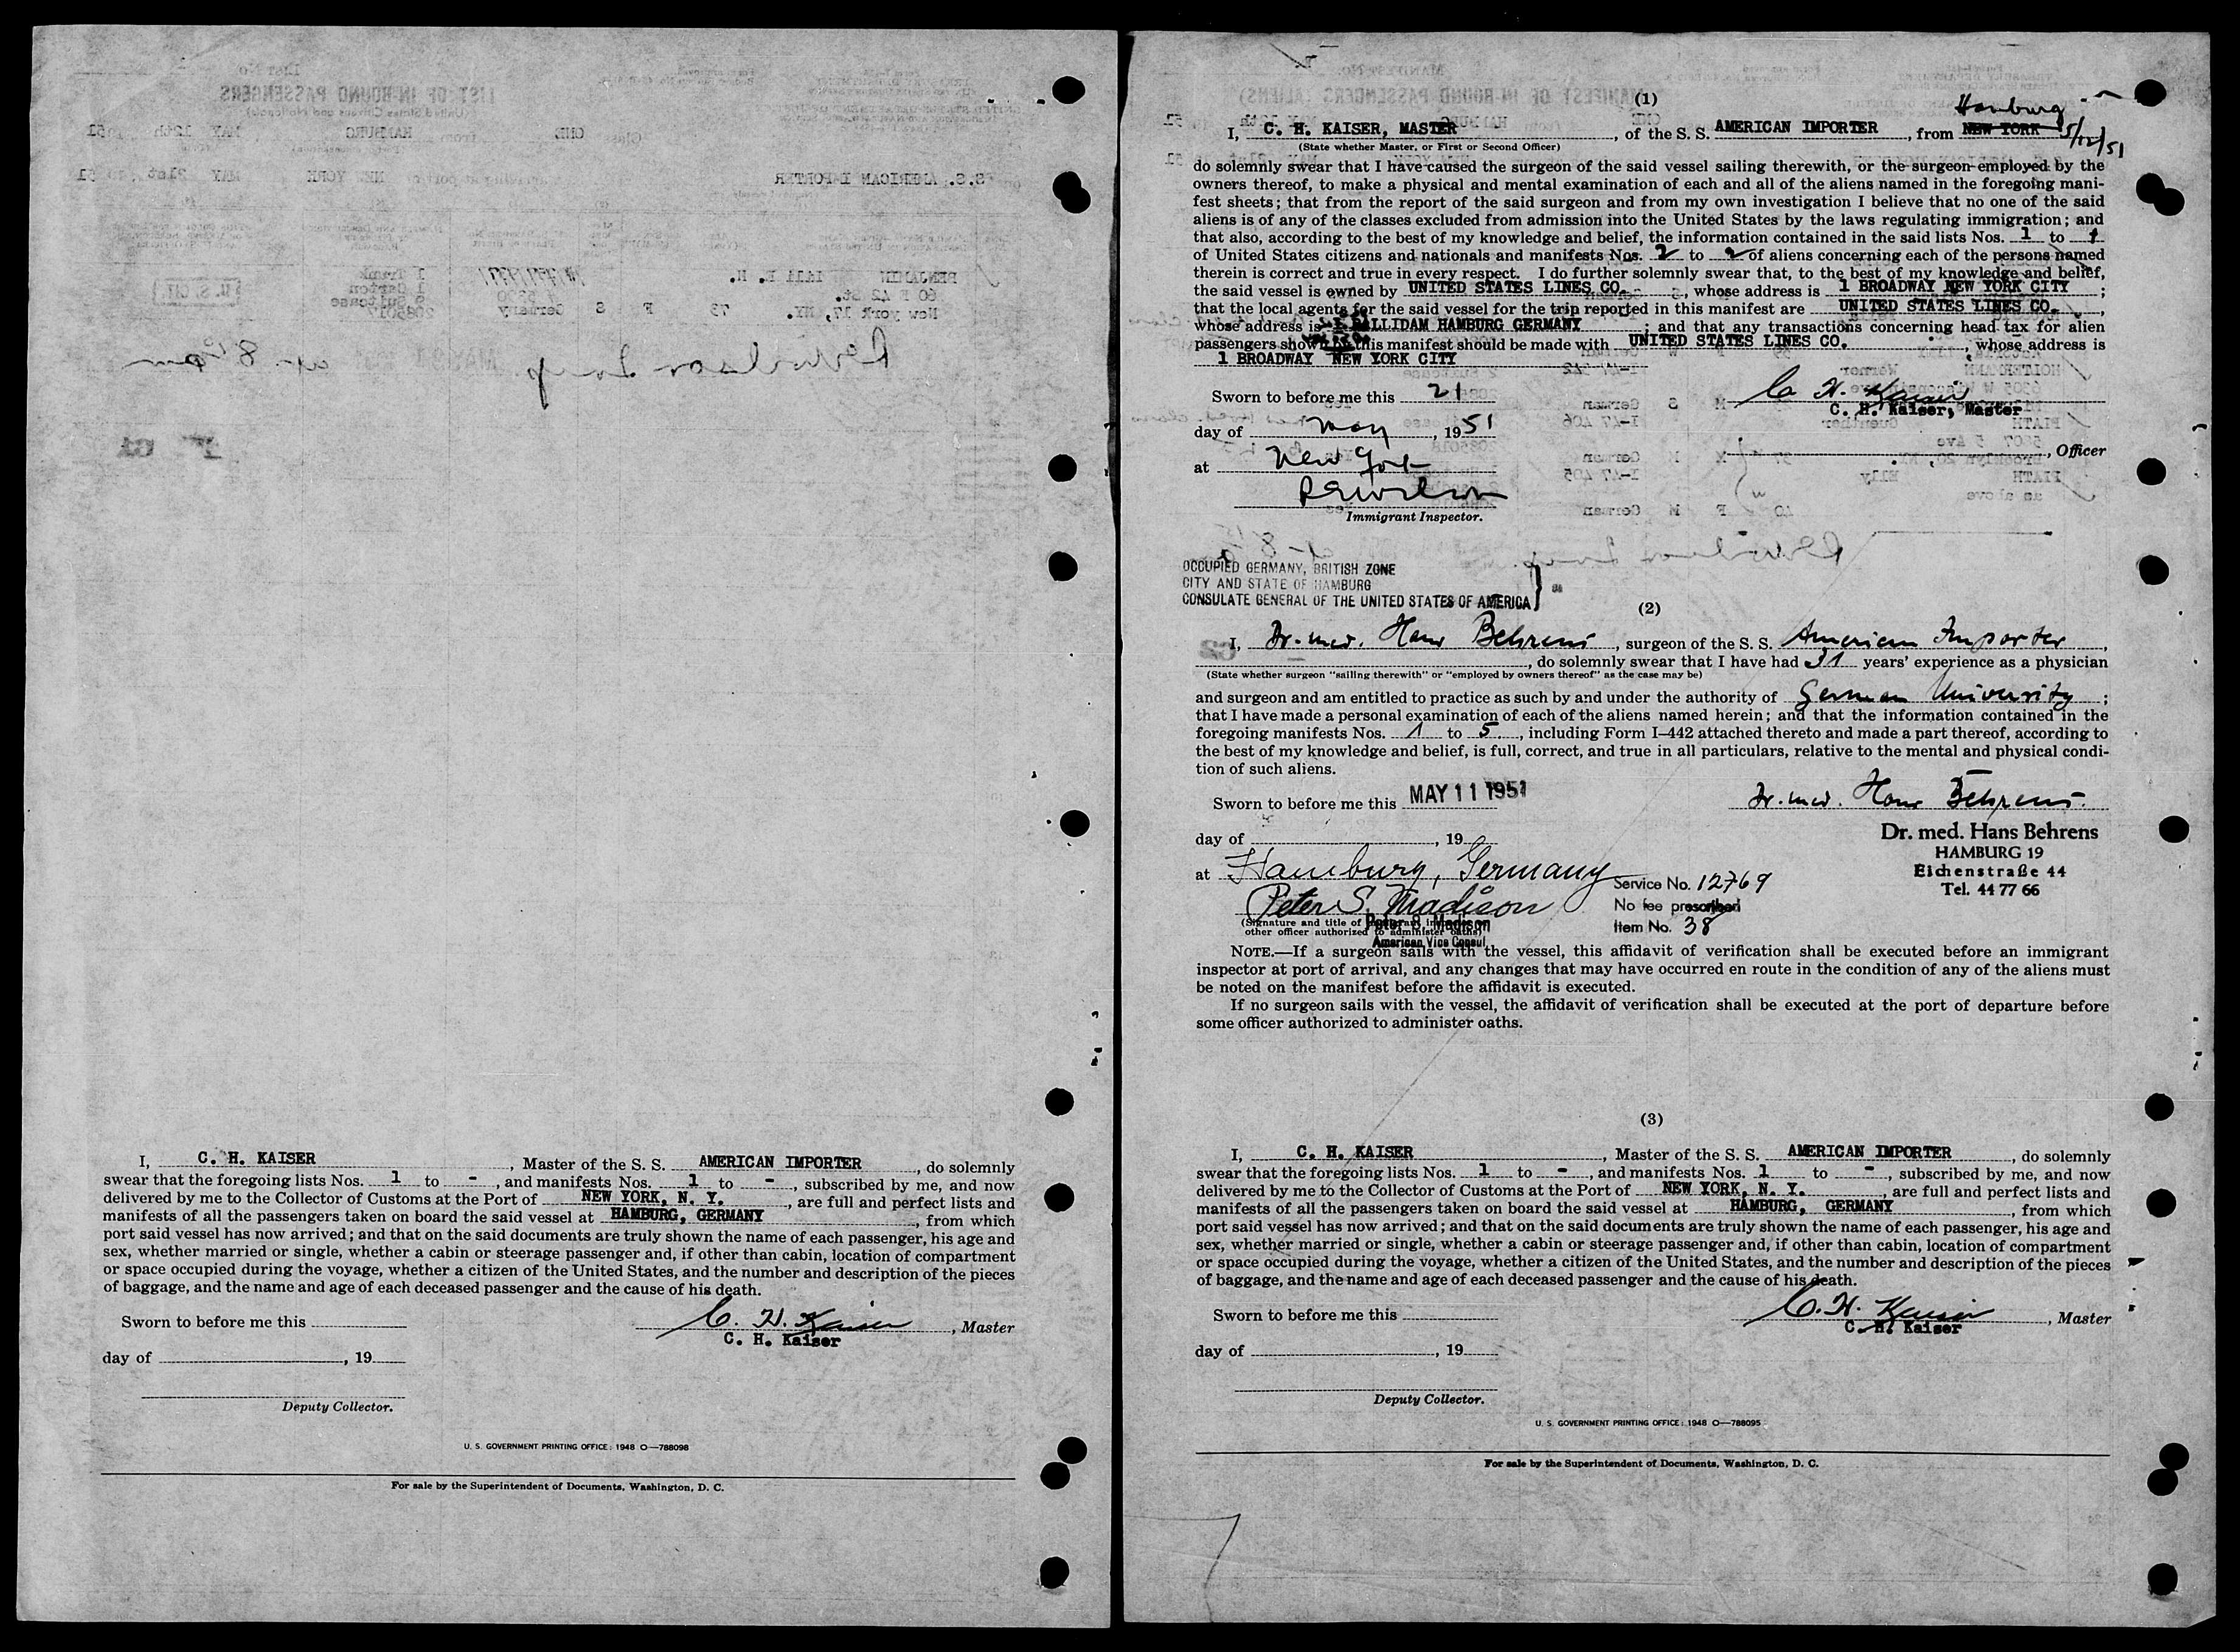 I, C. H. KAISER, Master of the S. S. AMERICAN IMPORTER, do solemnly
swear that the foregoing lists Nos. 1 to -, and manifests Nos. 1 to -, subscribed by me, and now
delivered by me to the Collector of Customs at the Port of NEW YORK, N. Y., are full and perfect lists and
manifests of all the passengers taken on board the said vessel at HAMBURG, GERMANY, from which
port said vessel has now arrived; and that on the said documents are truly shown the name of each passenger, his age and
sex, whether married or single, whether a cabin or steerage passenger and, if other than cabin, location of compartment
or space occupied during the voyage, whether a citizen of the United States, and the number and description of the pieces
of baggage, and the name and age of each deceased passenger and the cause of his death.
Sworn to before me this
C. H. Kaiser, Master
C. H. Kaiser
day of , 19
Deputy Collector.
U. S. GOVERNMENT PRINTING OFFICE: 1948 O—788098
For sale by the Superintendent of Documents, Washington, D. C.
(1)
Hamburg
I, C. H. KAISER, MASTER, of the S. S. AMERICAN IMPORTER, from NEW YORK 5/12/51
(State whether Master, or First or Second Officer)
do solemnly swear that I have caused the surgeon of the said vessel sailing therewith, or the surgeon employed by the
owners thereof, to make a physical and mental examination of each and all of the aliens named in the foregoing mani-
fest sheets; that from the report of the said surgeon and from my own investigation I believe that no one of the said
aliens is of any of the classes excluded from admission into the United States by the laws regulating immigration; and
that also, according to the best of my knowledge and belief, the information contained in the said lists Nos. 1 to 1
of United States citizens and nationals and manifests Nos. 2 to 2 of aliens concerning each of the persons named
therein is correct and true in every respect. I do further solemnly swear that, to the best of my knowledge and belief,
the said vessel is owned by UNITED STATES LINES CO., whose address is 1 BROADWAY NEW YORK CITY;
that the local agents for the said vessel for the trip reported in this manifest are UNITED STATES LINES CO.,
whose address is BALLIDAM HAMBURG GERMANY; and that any transactions concerning head tax for alien
passengers shown in this manifest should be made with UNITED STATES LINES CO., whose address is
1 BROADWAY NEW YORK CITY
Sworn to before me this 21
C. H. Kaiser
C. H. Kaiser, Master
day of May, 1951
, Officer
at New York
R E Wilson
Immigrant Inspector.
OCCUPIED GERMANY, BRITISH ZONE
CITY AND STATE OF HAMBURG
CONSULATE GENERAL OF THE UNITED STATES OF AMERICA } ss
(2)
I, Dr. med. Hans Behrens, surgeon of the S. S. American Importer,
, do solemnly swear that I have had 31 years' experience as a physician
(State whether surgeon "sailing therewith" or "employed by owners thereof" as the case may be)
and surgeon and am entitled to practice as such by and under the authority of German University;
that I have made a personal examination of each of the aliens named herein; and that the information contained in the
foregoing manifests Nos. 1 to 5, including Form I-442 attached thereto and made a part thereof, according to
the best of my knowledge and belief, is full, correct, and true in all particulars, relative to the mental and physical condi-
tion of such aliens.
Sworn to before me this MAY 11 1951
Dr. med. Hans Behrens.
day of , 19
Dr. med. Hans Behrens
HAMBURG 19
Eichenstraße 44
Tel. 44 77 66
at Hamburg, Germany
Service No. 12769
Peter S. Madison
No fee prescribed
(Signature and title of immigrant inspector or
Peter S. Madison
Item No. 38
other officer authorized to administer oaths)
American Vice Consul
NOTE.—If a surgeon sails with the vessel, this affidavit of verification shall be executed before an immigrant
inspector at port of arrival, and any changes that may have occurred en route in the condition of any of the aliens must
be noted on the manifest before the affidavit is executed.
If no surgeon sails with the vessel, the affidavit of verification shall be executed at the port of departure before
some officer authorized to administer oaths.
(3)
I, C. H. KAISER, Master of the S. S. AMERICAN IMPORTER, do solemnly
swear that the foregoing lists Nos. 1 to -, and manifests Nos. 1 to -, subscribed by me, and now
delivered by me to the Collector of Customs at the Port of NEW YORK, N. Y., are full and perfect lists and
manifests of all the passengers taken on board the said vessel at HAMBURG, GERMANY, from which
port said vessel has now arrived; and that on the said documents are truly shown the name of each passenger, his age and
sex, whether married or single, whether a cabin or steerage passenger and, if other than cabin, location of compartment
or space occupied during the voyage, whether a citizen of the United States, and the number and description of the pieces
of baggage, and the name and age of each deceased passenger and the cause of his death.
Sworn to before me this
C. H. Kaiser, Master
C. H. Kaiser
day of , 19
Deputy Collector.
U. S. GOVERNMENT PRINTING OFFICE: 1948 O—788095
For sale by the Superintendent of Documents, Washington, D. C.